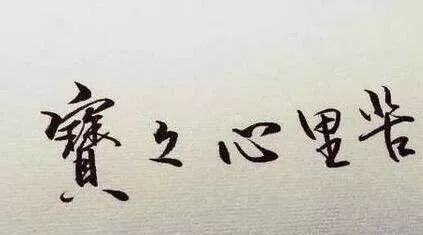 寶之心里苦